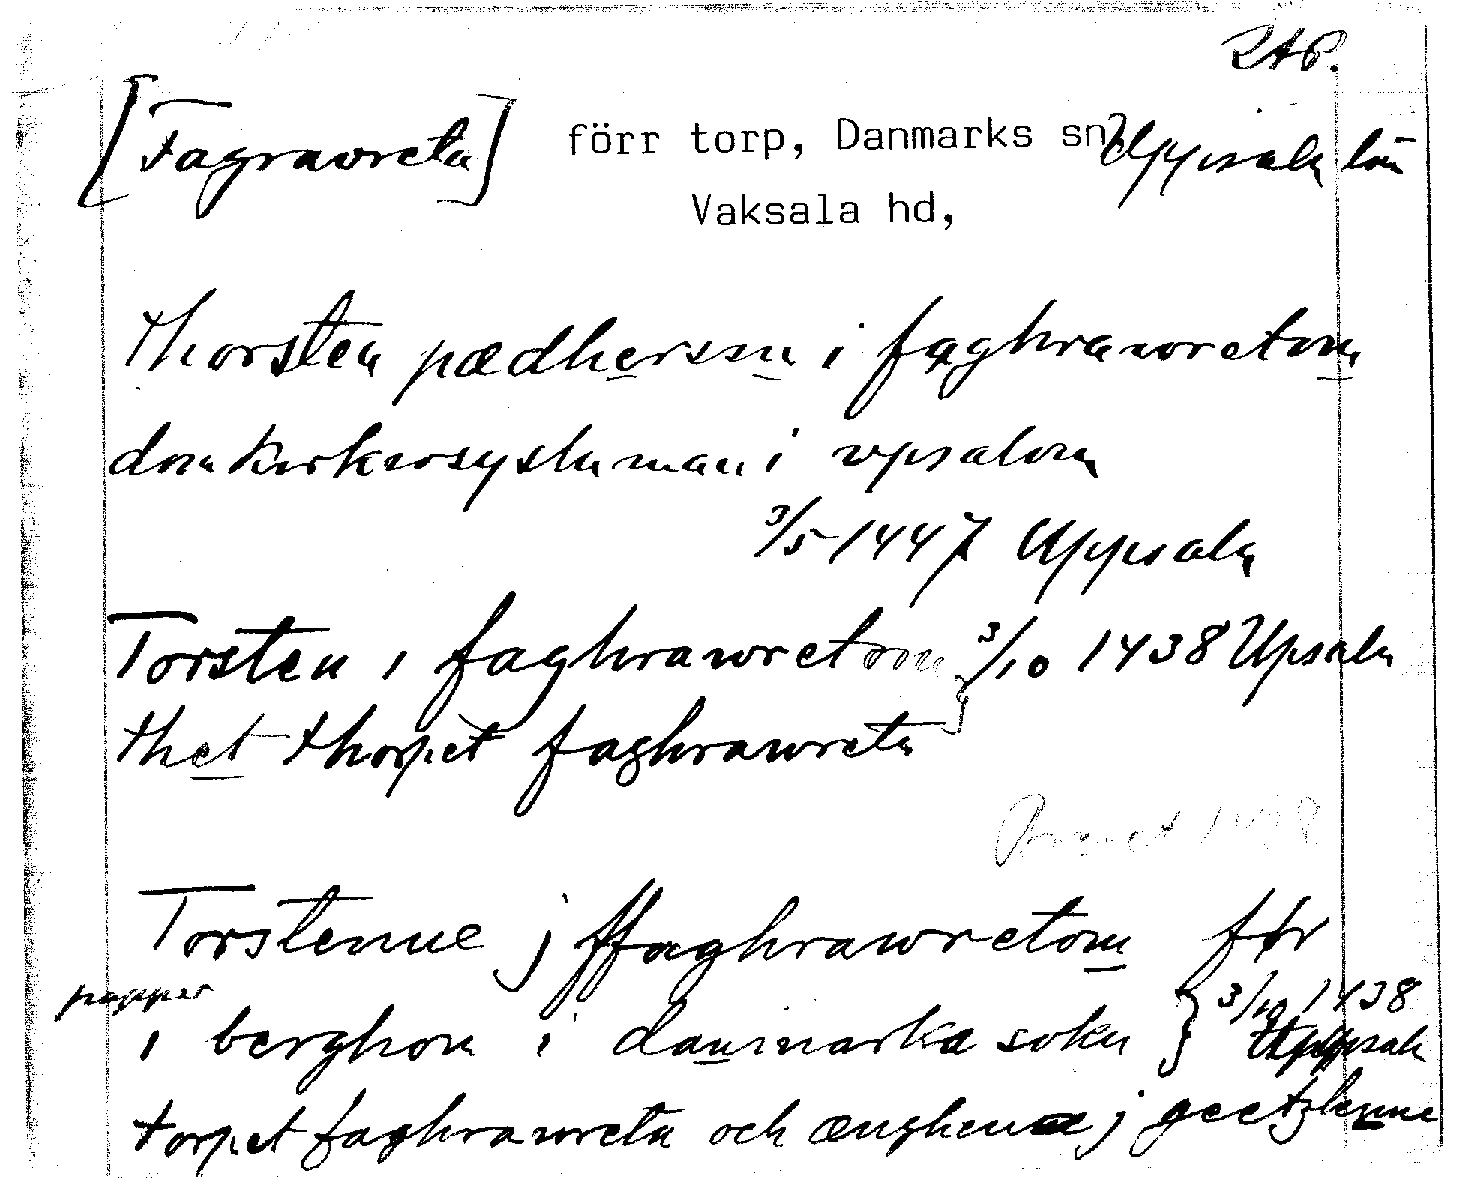 RAP.
[Fagrawreta] förr torp, Danmarks sn, Uppsala län
Vaksala hd,
thorsten pædherssn i faghrawretom
domkirkiosysluman i vpsalom
3/5 1447 Uppsala
Torsten i faghrawretom } 3/10 1438 Upsala
thet thorpet faghrawreta
Torstenne j ffaghrawretom för
papper
i berghom i danmarka sokn } 3/10 1438
Uppsala
torpet faghrawreta och ænghena j geetzlenne